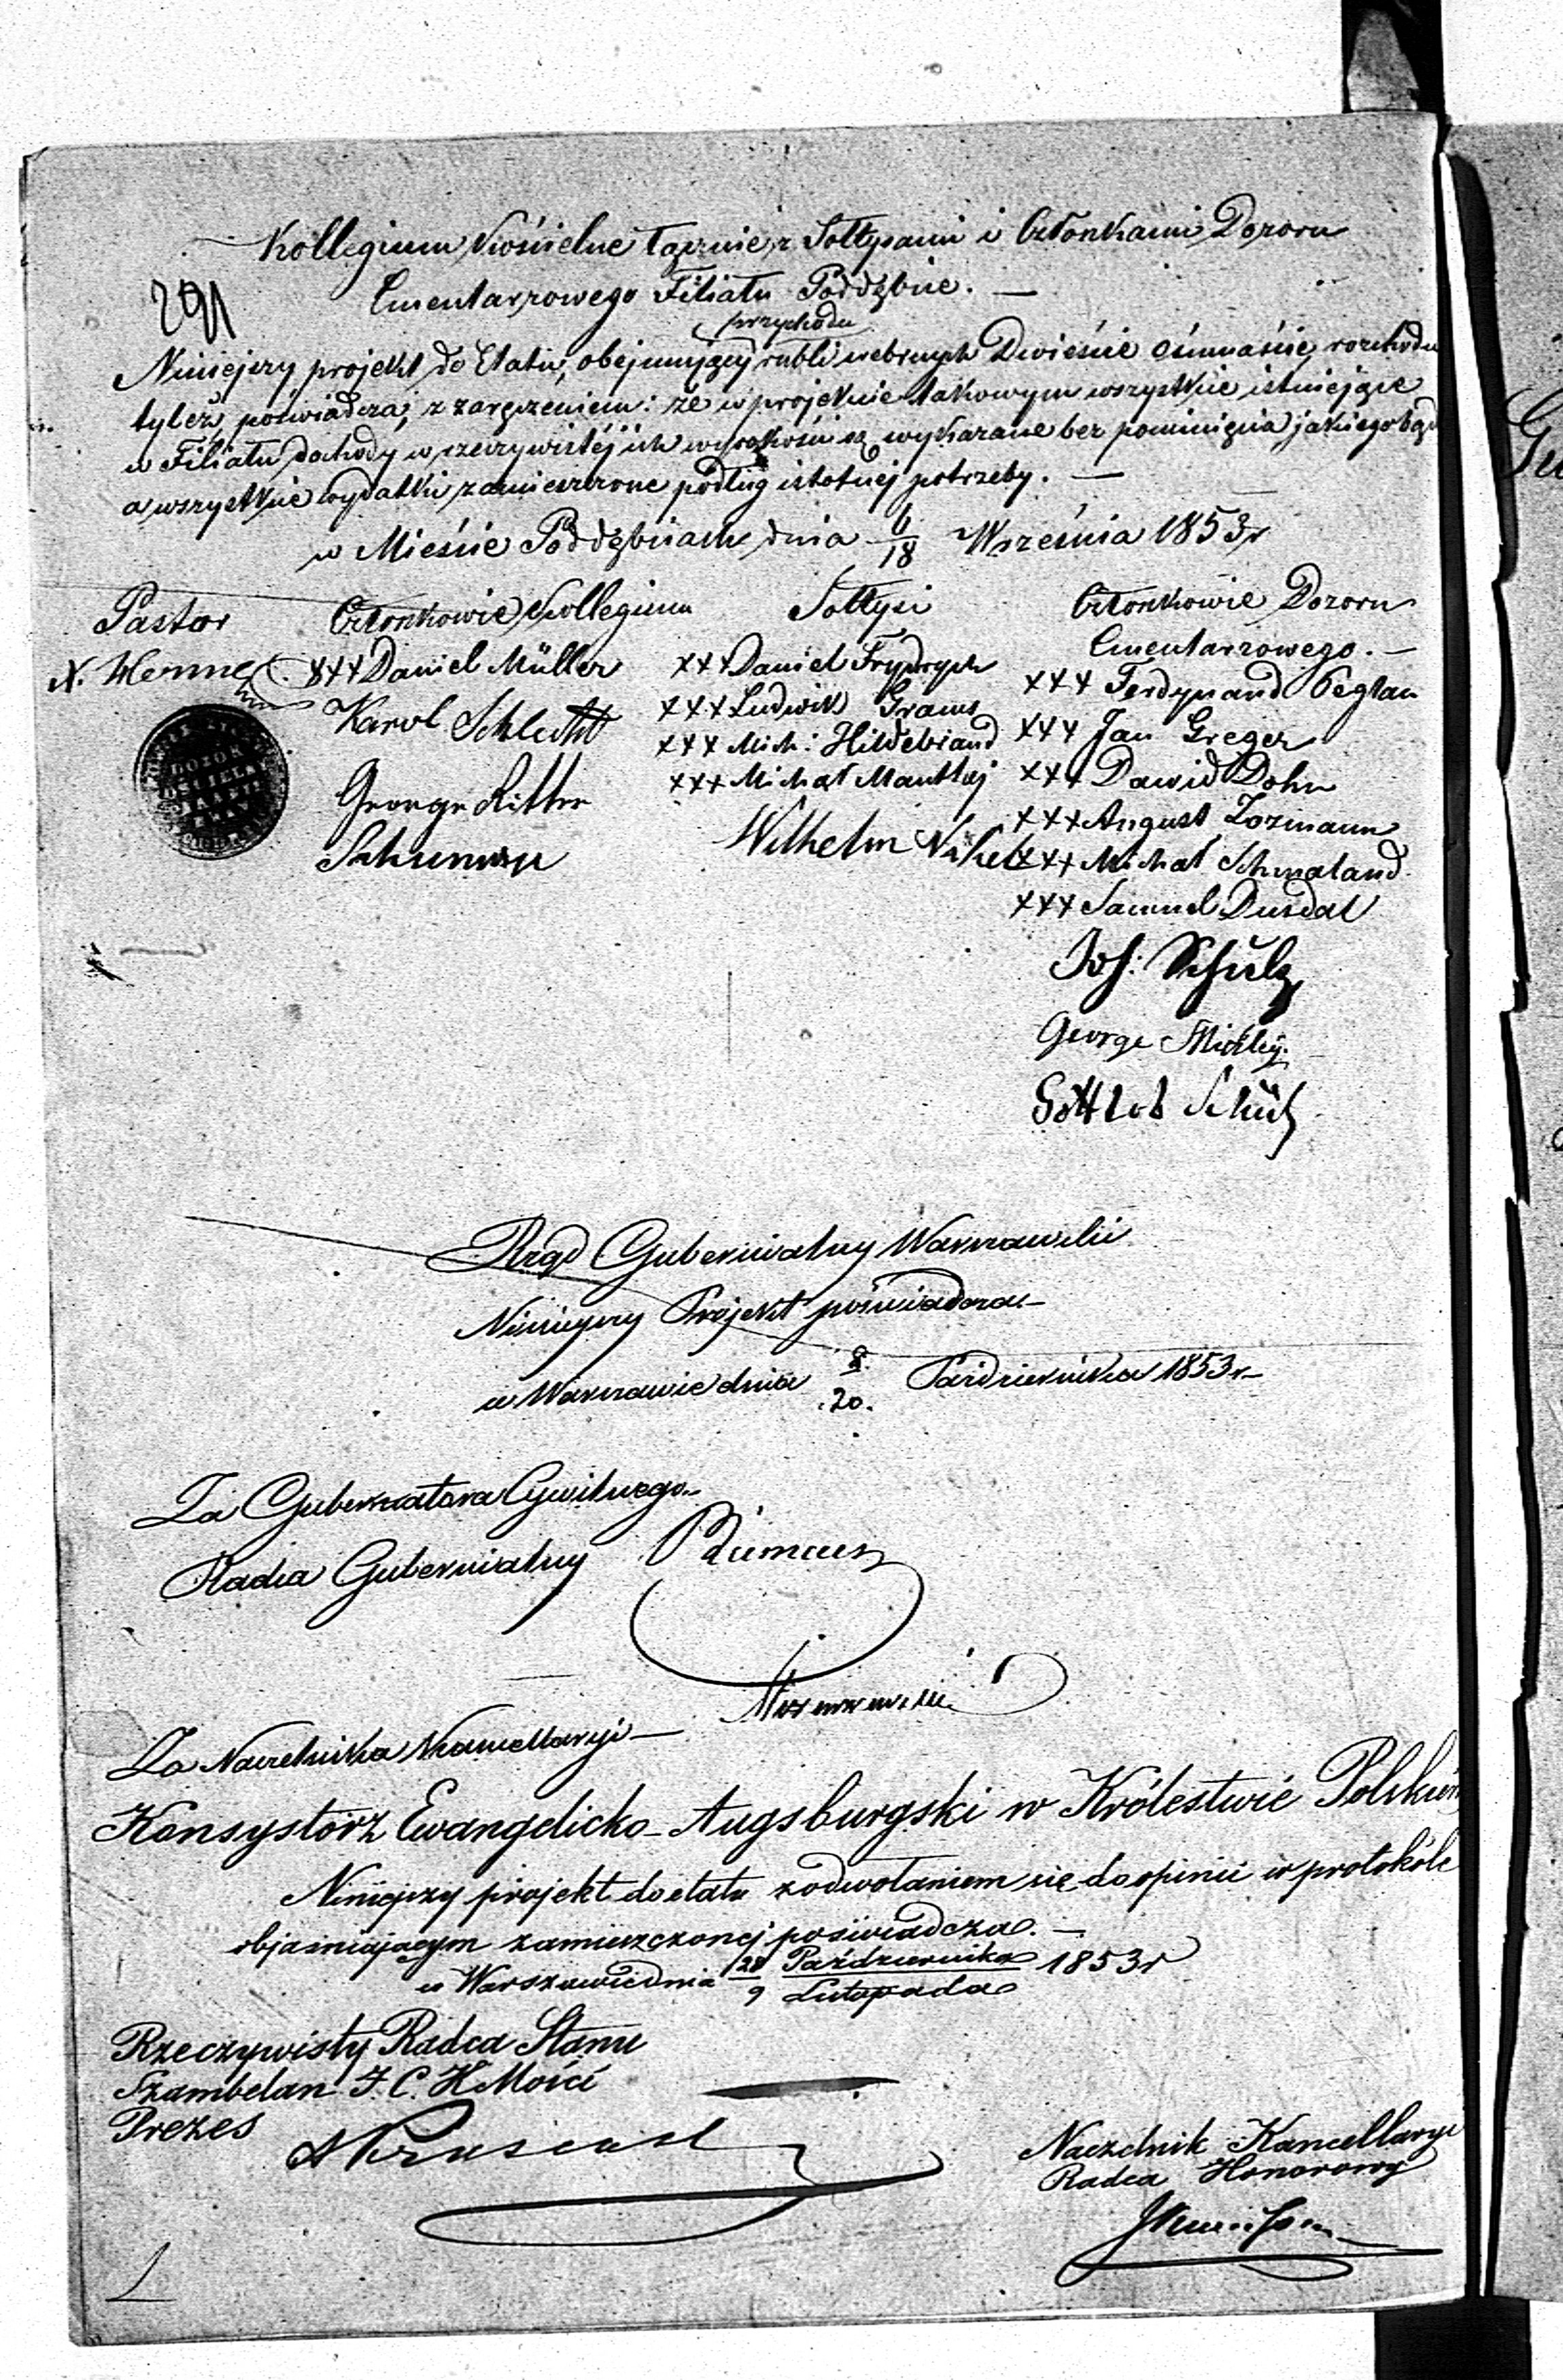 Kollegium Kościelne łącznie z Sołtysami i Członkami Dozoru
Cmentarzowego Filiału Poddębice. —
291
przychodu
Niniejszy projekt do Etatu, obejmujący rubli srebrnych Dwieście ośmnaście, rozchodu
tyleż, poświadcza, z zaręczeniem: że w projekcie takowym wszystkie istniejące
w Filiału dochody w rzeczywistéj ich wysokości są wykazane bez pominięcia jakiegobądź
a wszystkie wydatki zamieszczone podług istotnej potrzeby. —
w Mieście Poddębicach dnia 6/18 Września 1853 r
Pastor Członkowie Kollegium Sołtysi Członkowie Dozoru
Cmentarzowego. —
XXX Daniel Müller
Karol Schlecht
George Ritter
XXX Daniel Frydrych
XXX Ludwik Grams
XXX Mich: Hildebrand
XXX Michał Manthaj
Wilhelm Nikel
XXX Ferdynand Peglau
XXX Jan Greger
XXX Dawid Dohn
XXX August Lozmann
XXX Michał Schmaland
XXX Samuel Dusdal
Joh: Schulz
George
Gottlob Schulz
DOZÓR
Rząd Gubernialny Warszawski
Niniejszy Projekt poświadcza —
w Warszawie dnia 8/20. Października 1853 r —
Za Gubernatora Cywilnego —
Radca Gubernialny
Za Naczelnika Kancellaryi —
Konsystorz Ewangelicko-Augsburgski w Królestwie Polskiém
Niniejszy projekt do etatu z odwołaniem się do opinii w protokóle
objaśniającym zamieszczonej poświadcza. —
w Warszawie dnia 28/9 Października/Listopada 1853 r
Rzeczywisty Radca Stanu
Szambelan J. C. K Mości
Prezes
Naczelnik Kancellaryi
Radca Honorowy